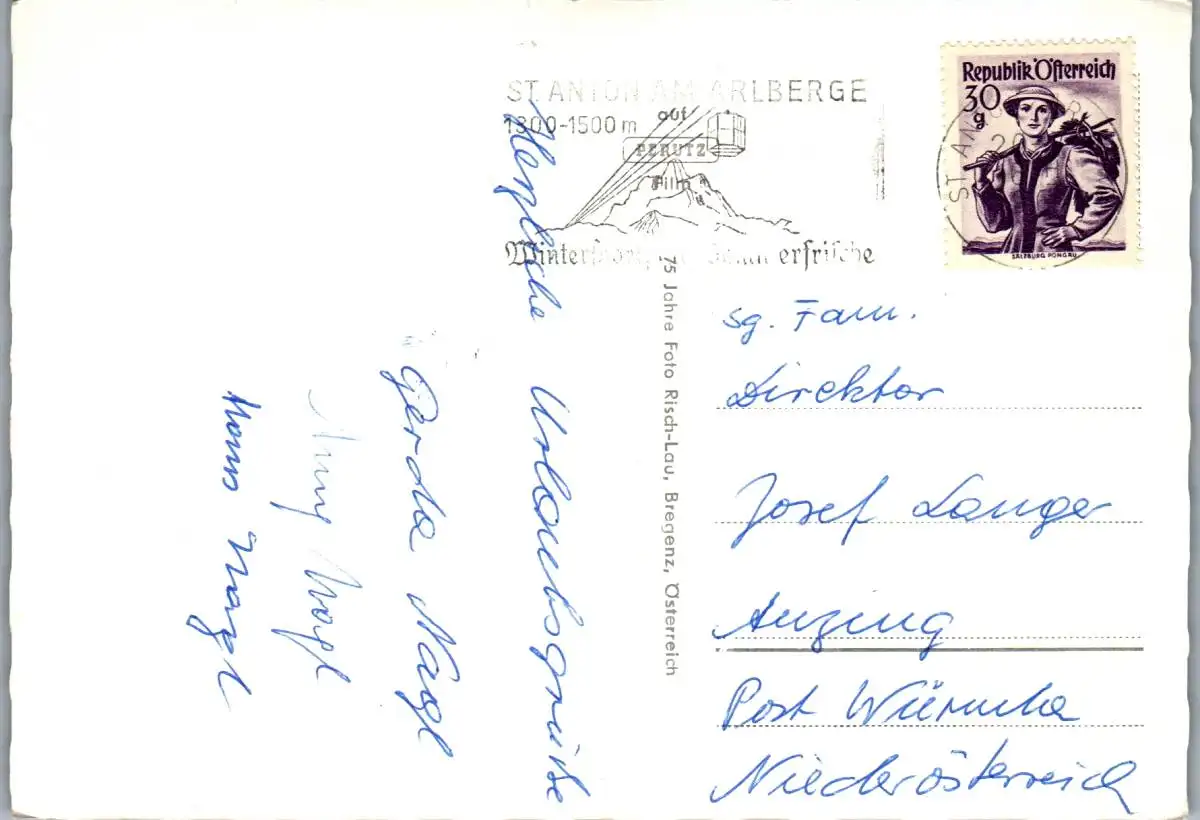 ST. ANTON AM ARLBERGE
1300-1500 m auf
PERUTZ
Film
Wintersport erfrische
Republik Österreich
30
g
SALZBURG PONGAU
ST. ANTON
Herzliche Urlaubsgrüße
Gerda Nagl
Nagl
Hans Nagl
75 Jahre Foto Risch-Lau, Bregenz, Österreich
sg. Fam.
Direktor
Josef Langer
Anzing
Post Würmla
Niederösterreich